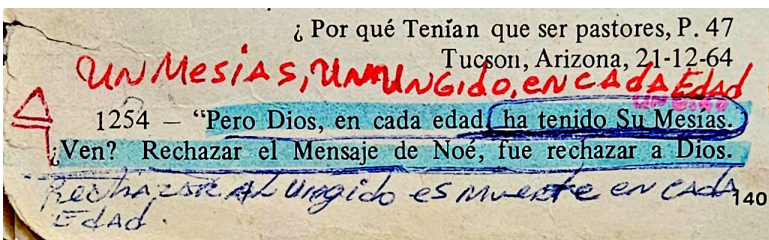 ¿ Por qué Tenían que ser pastores, P. 47
Tucson, Arizona, 21-12-64
UN MESÍAS, UN UNGIDO, EN CADA EDAD
1254 – "Pero Dios, en cada edad ha tenido Su Mesías.
¿Ven? Rechazar el Mensaje de Noé, fue rechazar a Dios.
Rechazar AL Ungido es MUERTE EN CADA
EDAD.
140